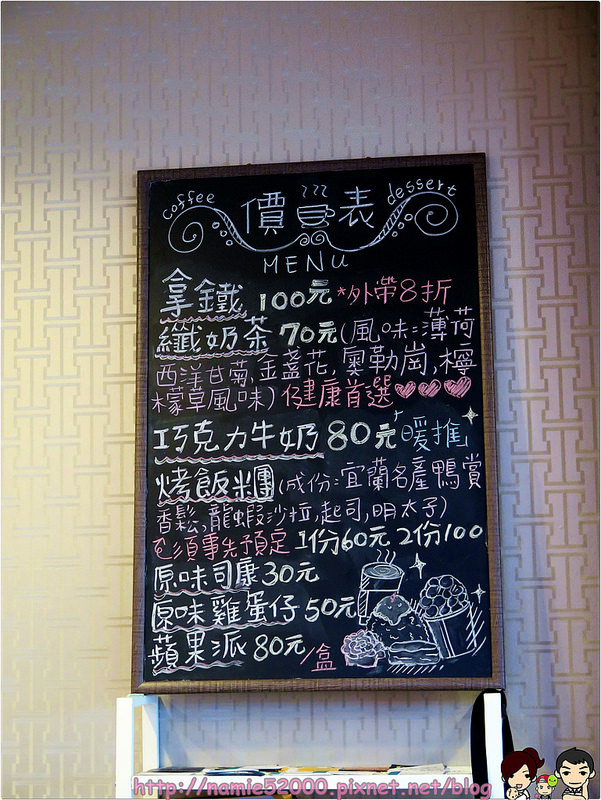 coffee 價目表 dessert
MENU
拿鐵 100元 *外帶8折
纖奶茶 70元(風味:薄荷
西洋甘菊,金盞花,奧勒崗,檸
檬草風味)健康首選
巧克力牛奶 80元 暖推
烤飯米團(成份:宜蘭名產鴨賞
香鬆,龍蝦沙拉,起司,明太子)
必須事先預定 1份60元 2份100
原味司康30元
原味雞蛋仔50元
蘋果派80元/盒
http://namie52000.pixnet.net/blog